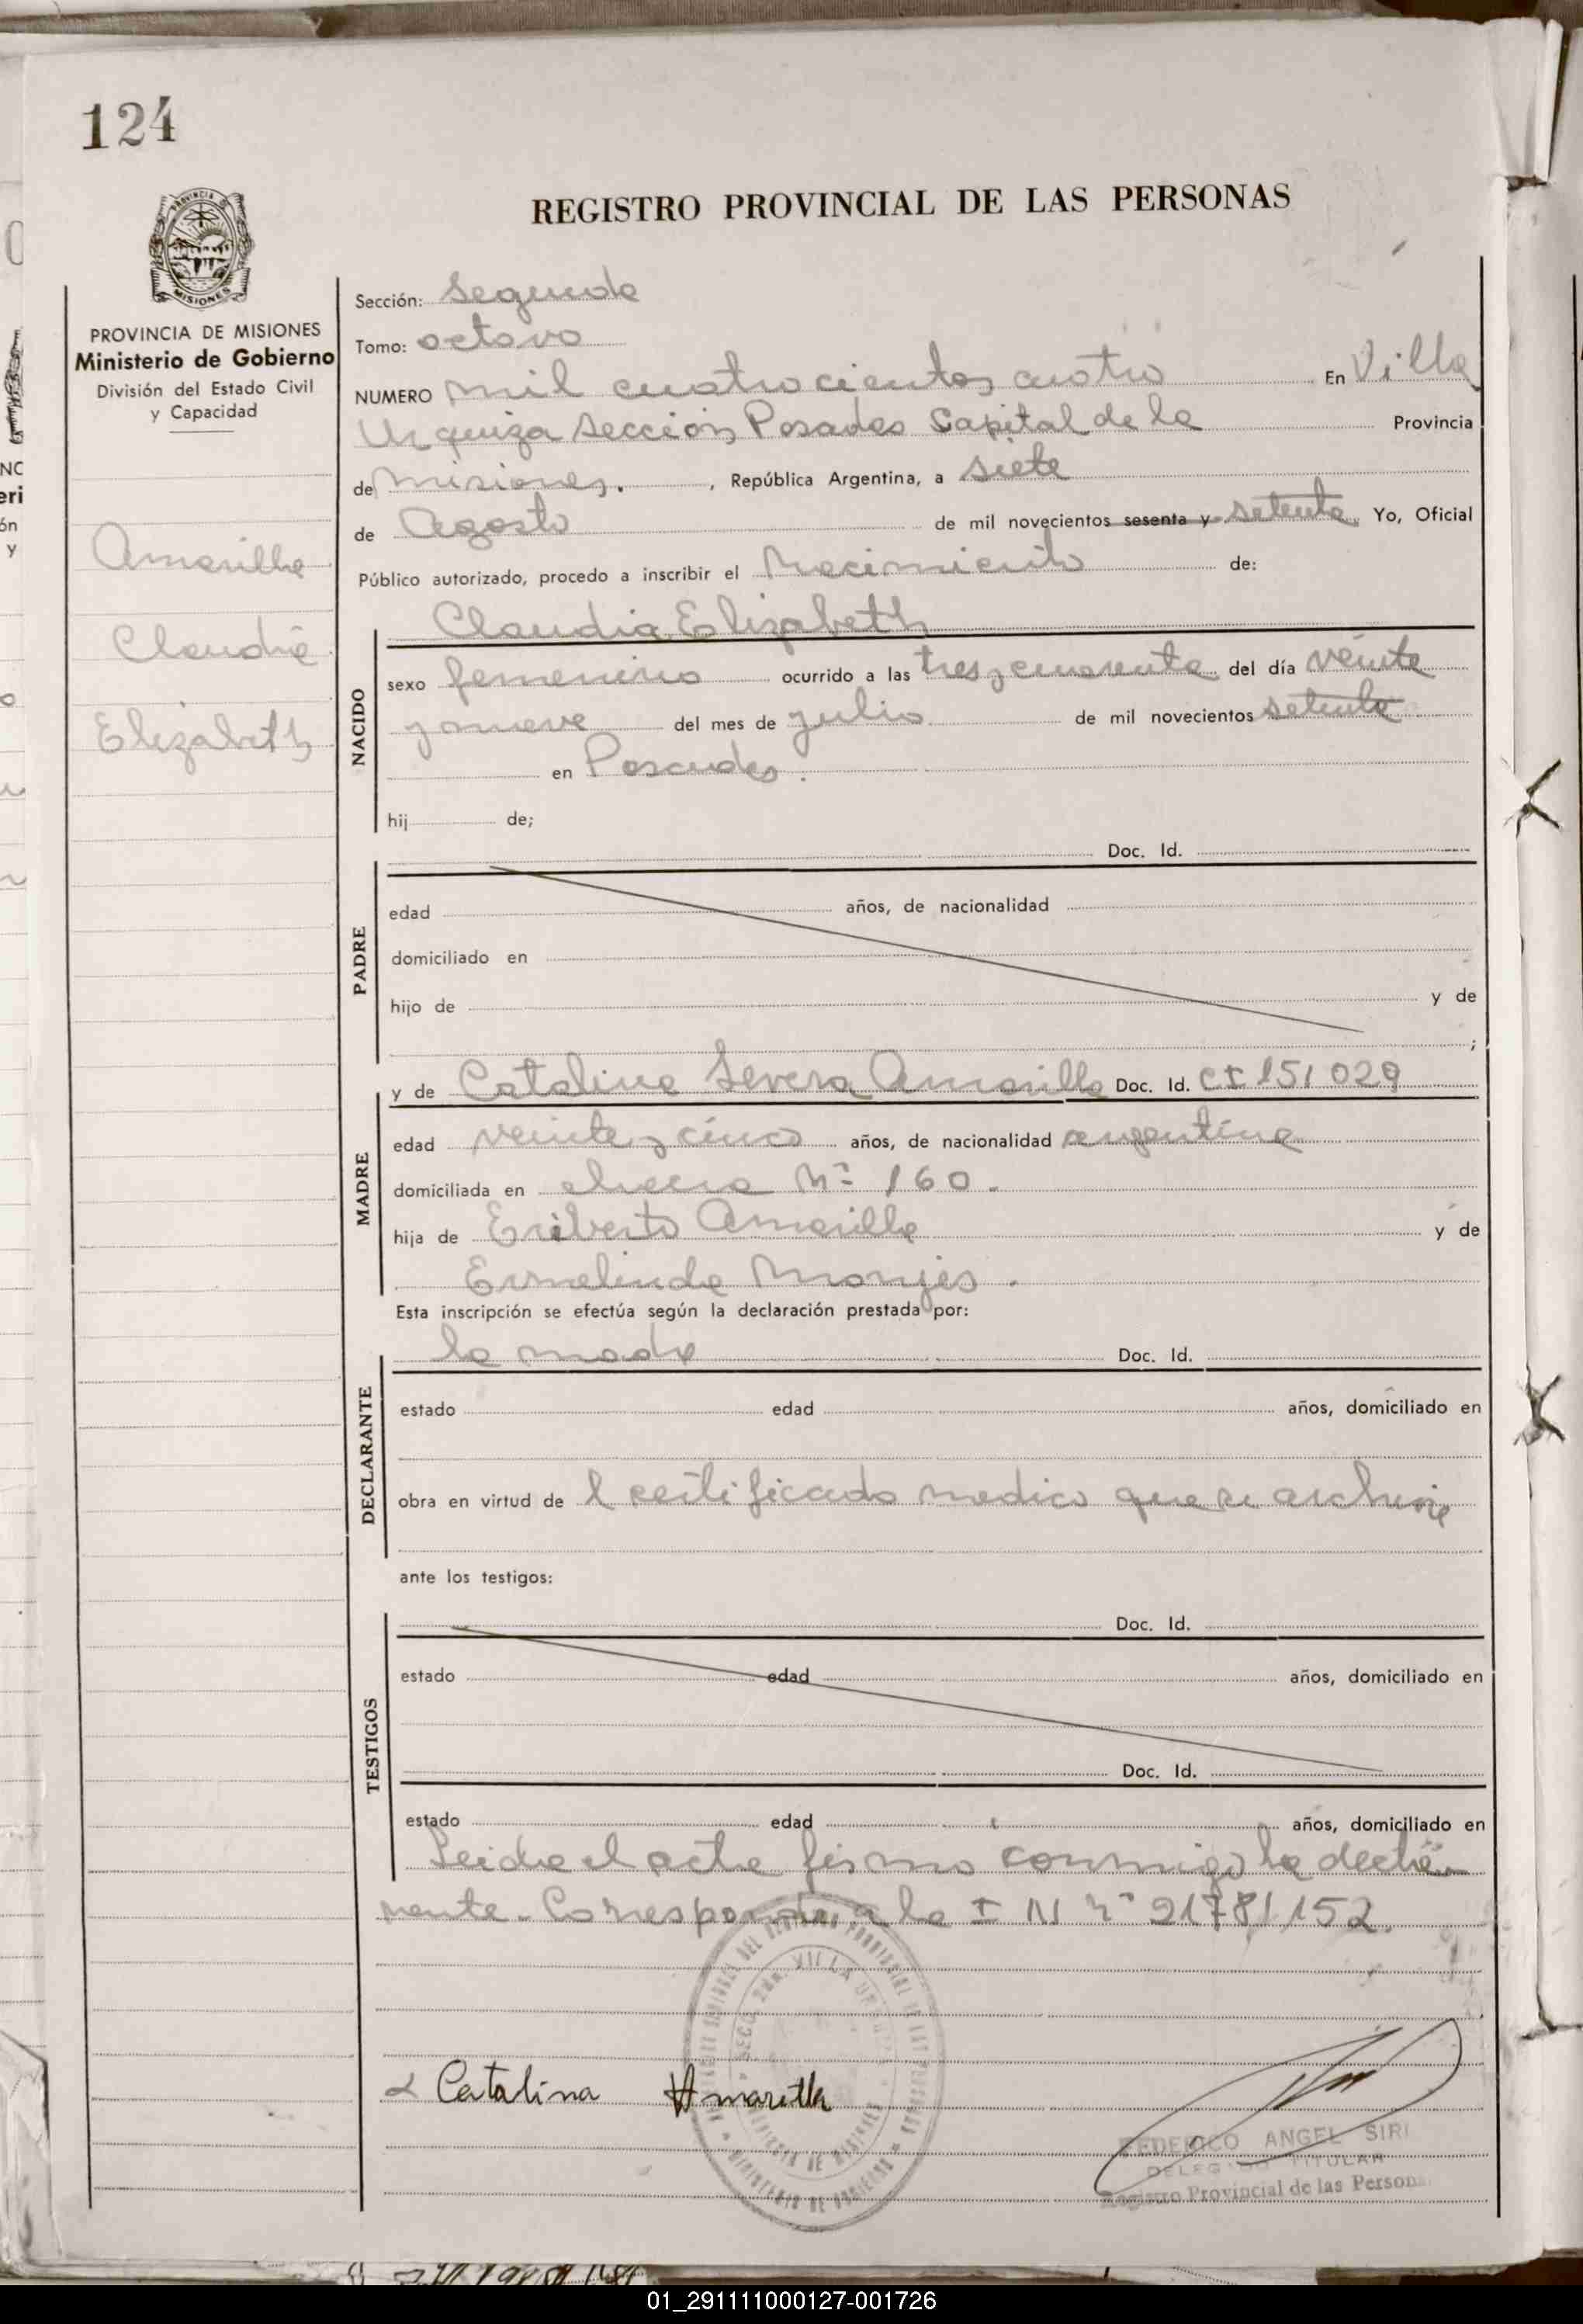 124
REGISTRO PROVINCIAL DE LAS PERSONAS
MISIONES
PROVINCIA DE MISIONES
Ministerio de Gobierno
División del Estado Civil
y Capacidad
Amarilla
Claudia
Elizabeth
Sección: Segunda
Tomo: octavo
NUMERO mil cuatrocientos cuatro En Villa
Urquiza Sección Posadas Capital de la Provincia
de Misiones. , República Argentina, a siete
de Agosto de mil novecientos sesenta y setenta Yo, Oficial
Público autorizado, procedo a inscribir el Nacimiento de:
Claudia Elizabeth
NACIDO
sexo femenino ocurrido a las tres y cuarenta del día veinte
y nueve del mes de julio de mil novecientos setenta
en Posadas.
hij de;
Doc. Id.
PADRE
edad años, de nacionalidad
domiciliado en
hijo de y de
;
y de Catalina Severa Amarilla Doc. Id. CI 151029
MADRE
edad veinte y cinco años, de nacionalidad argentina
domiciliada en Nº 160.
hija de Eriberto Amarilla y de
Ermelinda Monjes.
Esta inscripción se efectúa según la declaración prestada por:
la madre Doc. Id.
DECLARANTE
estado edad años, domiciliado en
obra en virtud de l certificado medico que se archiva
ante los testigos:
Doc. Id.
TESTIGOS
estado edad años, domiciliado en
Doc. Id.
estado edad años, domiciliado en
Leida el acta firma conmigo la
Corresponde a la I N 21781152.
Catalina Amarilla
FEDERICO ANGEL SIRI
DELEGADO TITULAR
Registro Provincial de las Persona
01_291111000127-001726